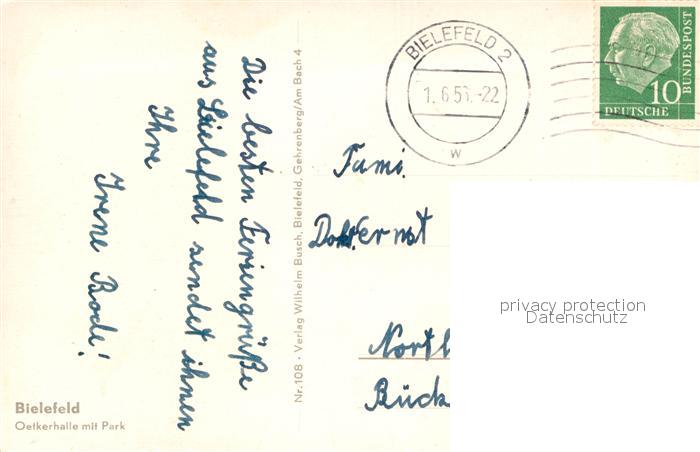 Die besten Feriengrüße
aus Bielefeld sendet ihnen
Ihre
Irene Bode!
Bielefeld
Oetkerhalle mit Park
Nr. 108 · Verlag Wilhelm Busch, Bielefeld, Gehrenberg/Am Bach 4
BIELEFELD 2
1. 6.5 -22
w
DEUTSCHE
BUNDESPOST
10
Fami.
Dokt. Ernst
Northl
Bück
privacy protection
Datenschutz